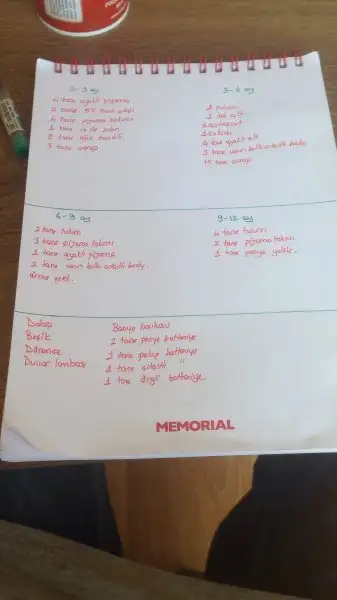 0-3 ay
4 tane ayaklı pijama
4 tane pijama takımı
3 tane çorap
3-6 ay
2 tulum
1 tek alt
4 tane ayaklı alt
3 tane uzun kollu çıtçıtlı body
15 tane çorap
6-9 ay
2 tane tulum
3 tane pijama takımı
1 tane ayaklı pijama
2 tane uzun kollu çıtçıtlı body.
örme yelek.
9-12 ay
4 tane tulum
2 tane pijama takımı
1 tane penye yelek.
Dolap
Beşik
Dönence
Duvar lambası
Banyo havlusu
2 tane penye battaniye
1 tane peluş battaniye
1 tane "
1 tane örgü battaniye.
MEMORIAL